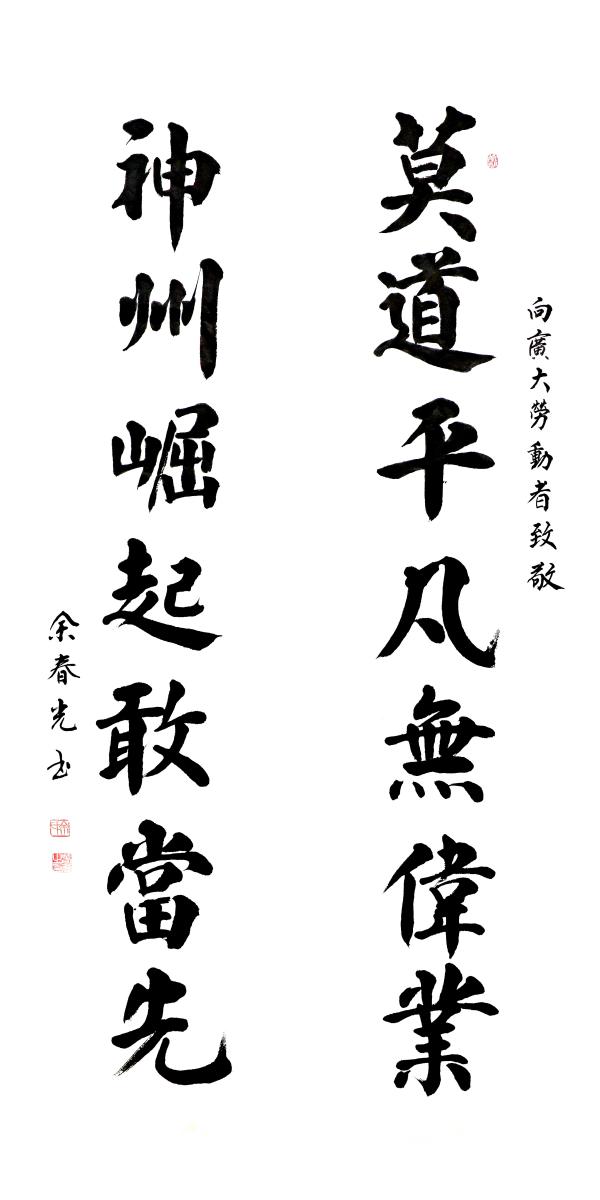 向廣大勞動者致敬
莫道平凡無偉業
神州崛起敢當先
余春光书